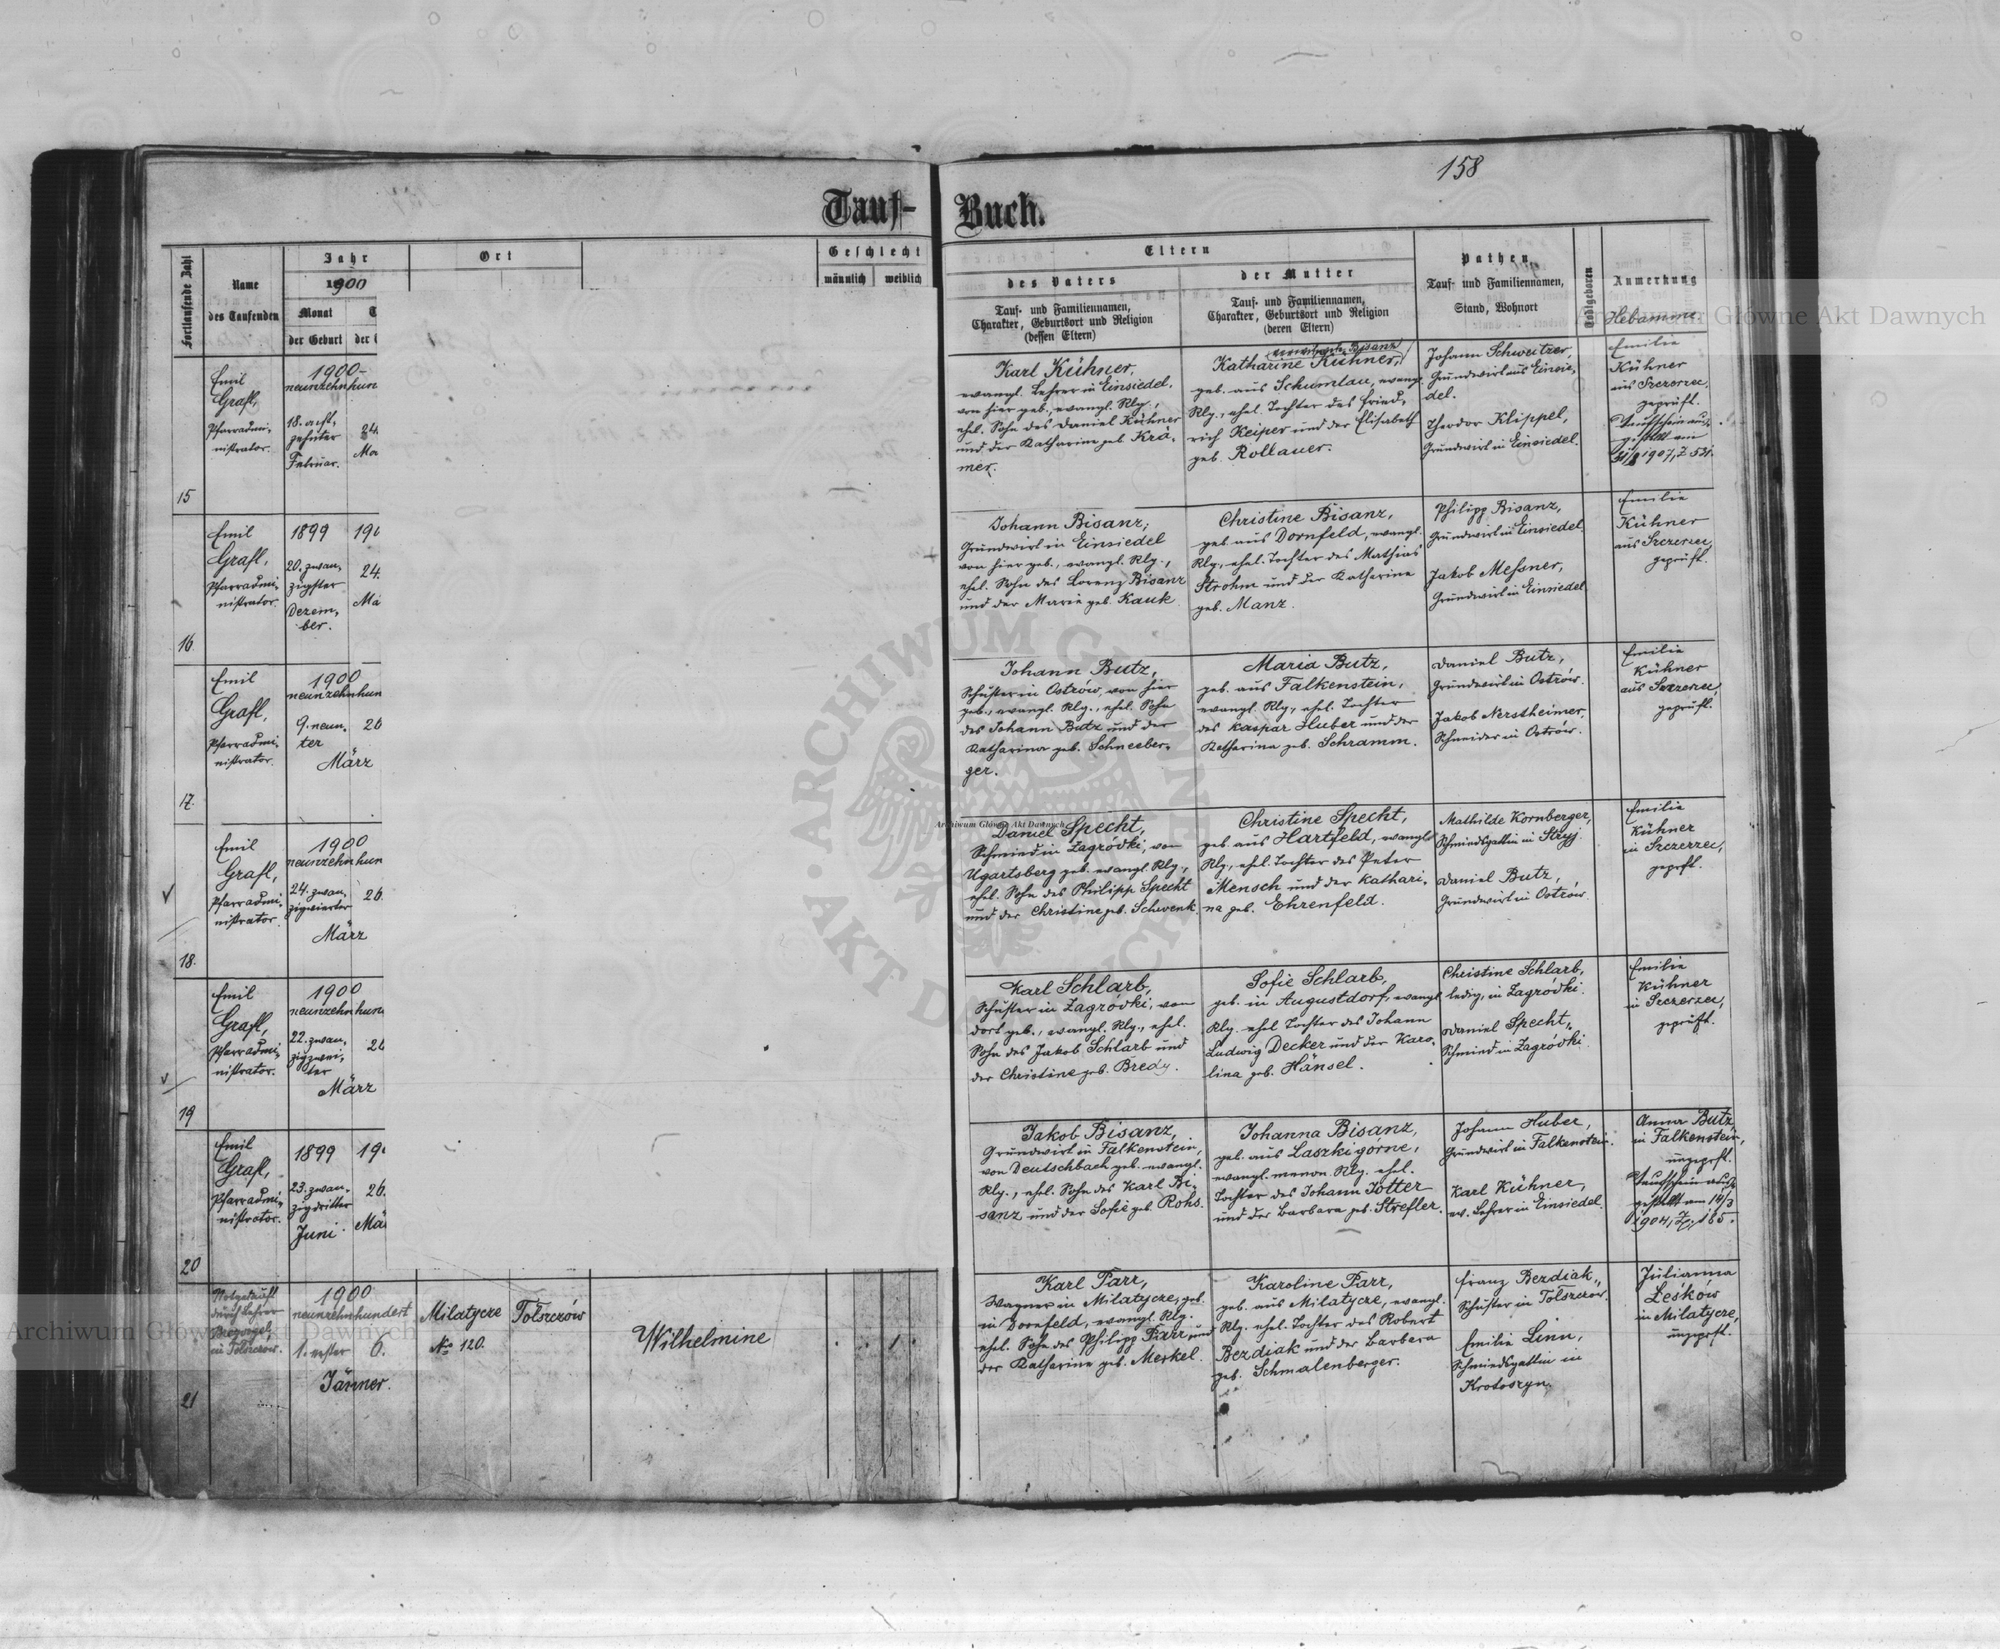 158
Tauf-Buch.
Fortlaufende Zahl
Name
des Taufenden
Jahr
1900
Monat
der Geburt
Ort
Geschlecht
männlich
weiblich
Eltern
des Vaters
Tauf- und Familiennamen,
Charakter, Geburtsort und Religion
(dessen Eltern)
der Mutter
Tauf- und Familiennamen,
Charakter, Geburtsort und Religion
(deren Eltern)
Pathen
Tauf- und Familiennamen,
Stand, Wohnort
Todtgeboren
Anmerkung
Hebamme
15
Emil
Grafl,
Pfarradmi-
nistrator.
1900
neunzehnhun
18. acht,
zehnter
Februar.
24.
Karl Kühner,
evangl. Lehrer in Einsiedel,
von hier geb., evangl. Rlg.,
ehel. Sohn des Daniel Kühner
und der Katharina geb. Krä-
mer.
Katharine Kühner,
geb. aus Schumlau, evangl.
Rlg., ehel. Tochter des Fried-
rich Keiper und der Elisabeth
geb. Rollauer.
Johann Schweitzer,
Grundwirt aus Einsie-
del.
Theodor Klippel,
Grundwirt in Einsiedel.
Emilie
Kühner
aus Szczerzec,
geprüft.
Taufschein aus-
gestellt am
1907, Z. 531.
16.
Emil
Grafl,
Pfarradmi-
nistrator.
1899
20. zwan-
zigster
Dezem-
ber.
24.
Johann Bisanz,
Grundwirt in Einsiedel
von hier geb., evangl. Rlg.,
ehel. Sohn des Lorenz Bisanz
und der Marie geb. Kauk
Christine Bisanz,
geb. aus Dornfeld, evangl.
Rlg., ehel. Tochter des Mathias
Strohm und der Katharine
geb. Manz.
Philipp Bisanz,
Grundwirt in Einsiedel
Jakob Messner,
Grundwirt in Einsiedel
Emilie
Kühner
aus Szczerzec,
geprüft.
17.
Emil
Grafl,
Pfarradmi-
nistrator.
1900
neunzehnhun
9. neun-
ter
März
26
Johann Butz,
Schuster in Ostrów, von hier
geb., evangl. Rlg., ehel. Sohn
des Johann Butz und der
Katharina geb. Schneeber-
ger.
Maria Butz,
geb. aus Falkenstein,
evangl. Rlg., ehel. Tochter
des Kaspar Huber und der
Katharina geb. Schramm.
Daniel Butz,
Grundwirt in Ostrów.
Jakob Nerstheimer,
Schneider in Ostrów.
Emilie
Kühner
aus Szczerzec,
geprüft.
18.
Emil
Grafl,
Pfarradmi-
nistrator.
1900
neunzehnhun
24. zwan-
zigvierter
März
26.
Daniel Specht,
Schmied in Zagródki, von
Ugartsberg geb. evangl. Rlg.,
ehel. Sohn des Philipp Specht
und der Christine geb. Schwenk
Christine Specht,
geb. aus Hartfeld, evangl.
Rlg., ehel. Tochter des Peter
Mensch und der Kathari-
na geb. Ehrenfeld.
Mathilde Kornberger,
Schmiedsgattin in Stryj.
Daniel Butz,
Grundwirt in Ostrów.
Emilie
Kühner
in Szczerzec,
geprft.
19
Emil
Grafl,
Pfarradmi-
nistrator.
1900
neunzehnhun
22. zwan-
zigzwei-
ter
März
Karl Schlarb,
Schuster in Zagródki, von
dort geb., evangl. Rlg., ehel.
Sohn des Jakob Schlarb und
der Christine geb. Bredy.
Sofie Schlarb,
geb. in Augustdorf, evangl
Rlg. ehel Tochter des Johann
Ludwig Decker und der Karo-
lina geb. Hänsel.
Christine Schlarb,
ledig, in Zagródki.
Daniel Specht,
Schmied in Zagródki.
Emilie
Kühner
in Szczerzec,
geprüft.
20
Emil
Grafl,
Pfarradmi-
nistrator.
1899
23. zwan-
zigdritter
Juni.
26.
Jakob Bisanz,
Grundwirt in Falkenstein,
von Deutschbach geb. evangl.
Rlg., ehel. Sohn des Karl Bi-
sanz und der Sofie geb. Rohs.
Johanna Bisanz,
geb. aus Laszki górne,
evangl. menon. Rlg. ehel.
Tochter des Johann Jotter
und der Barbara geb. Strefler.
Johann Huber,
Grundwirt in Falkenstein.
Karl Kühner,
ev. Lehrer in Einsiedel.
Anna Butz,
in Falkenstein,
ungeprft.
Taufschein aus-
gestellt am 14/3
1904, Z. 185.
21
Notgetauft
durch Lehrer
in Tołszczow.
1900
neunzehnhundert
1. erster
6.
Jänner.
Milatycze
No 120.
Tołszczów
Wilhelmine
1
Karl Parr,
Wagner in Milatycze, geb.
in Dornfeld, evangl. Rlg.
ehel. Sohn des Philipp Parr und
der Katharine geb. Merkel.
Karoline Parr,
geb. aus Milatycze, evangl.
Rlg. ehel. Tochter des Robert
Bezdiak und der Barbara
geb. Schmalenberger.
Franz Bezdiak,
Schuster in Tołszczow.
Emilie Linn,
Schmiedsgattin in
Krotoszyn.
Julianna
Leśków
in Milatycze,
ungeprft.
Archiwum Główne Akt Dawnych